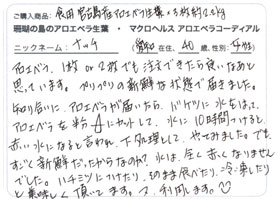 ご購入商品: 食用 宮古島産アロエベラ生葉×3枚約2.2kg
珊瑚の島のアロエベラ生葉 ・ マクロヘルス アロエベラコーディアル
ニックネーム: ナッチ 在住、40歳、性(女性)
アロエベラ、1枚or2枚でも注文できたら良いなあと
思っています。プリプリの新鮮な状態で届きました。
知り合いに、アロエベラが届いたら、バケツに氷をはって、
アロエベラを粉カットして、氷に10時間つけると、
赤い氷になると言われ下処理として、やってみました。でも、
すごく新鮮だったからなのか?氷は、全く赤くなりません
でした。ハチミツにつけたり、そのまま食べたり、冷凍したり
と美味しく頂いてます。又、利用します。